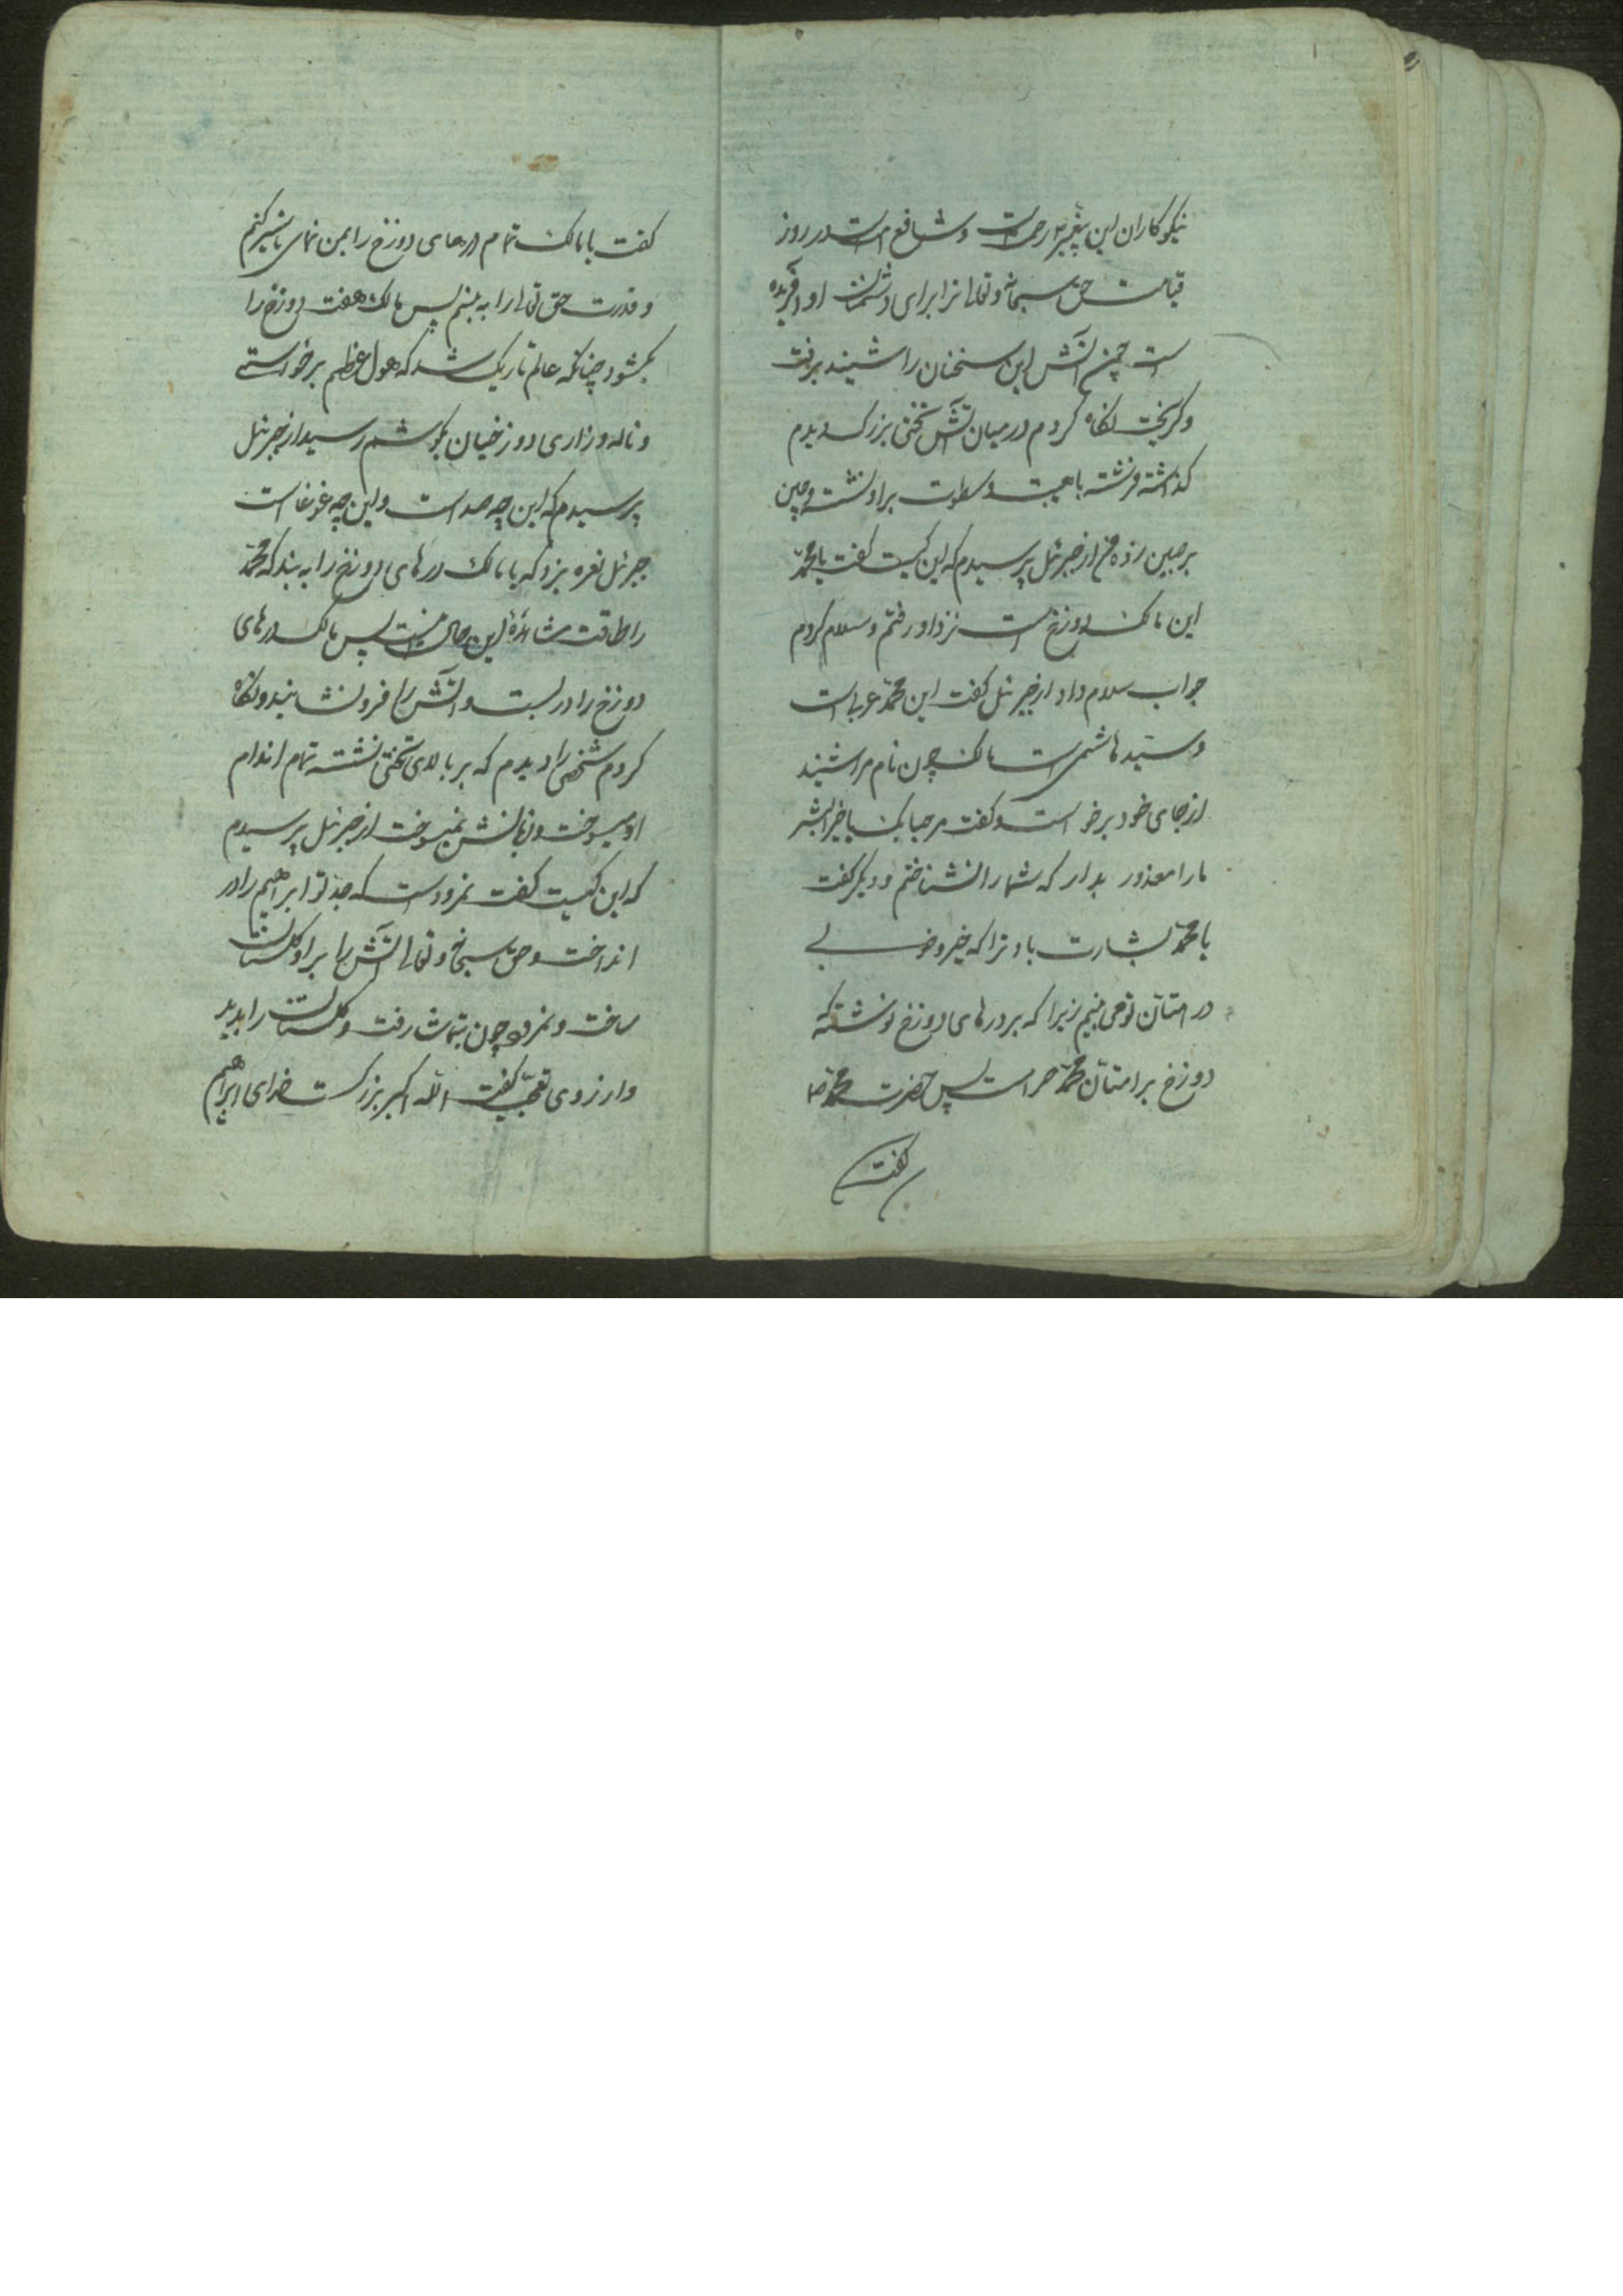 نیکوکاران این پیغمبر رحمت است و شافع امت است در روز
قیامت حق سبحانه و تعالی ترا برای دشمنان او آفریده
است چون آتش این سخنان را شنید برفت
و کریخت نکاه کردم در میان آتش تختی بزرک دیدم
کذاشته و فرشته با هیبت و سطوت بر او نشسته و چین
بر جبین زده من از جبرئیل پرسیدم که این کیست کفت یا محمّد
این مالک دوزخ است نزد او رفتم و سلام کردم
جواب سلام داد از جبرئیل کفت این محمّد عربی است
و سیّد هاشمی است مالک چون نام مرا شنید
از جای خود برخواست و کفت مرحبا بک یا خیر البشر
مارا معذور بدار که شما را نشناختم و دیکر کفت
یا محمّد بشارت باد ترا که خیر و خوبی
در امتان تو می بینم زیرا که بر درهای دوزخ نوشته که
دوزخ بر امتان محمّد حرام است پس حضرت محمّد ص
کفت
کفت یا مالک تمام درهای دوزخ را بمن نمای تا سیر کنم
و قدرت حق تعالی را به بینم پس مالک هفت دوزخ را
بکشود چنانکه عالم تاریک شد که هول عظیم برخواستی
و ناله و زاری دوزخیان بکوشم رسید از جبرئیل
پرسیدم که این چه صداست و این چه غوغا است
جبرئیل نعره بزد که یا مالک درهای دوزخ را به بند که محمّد
را طاقت مشاهدهٔ این حال نیست پس مالک درهای
دوزخ را در بست و آتش را فرو نشانید و نکاه
کردم شخصی را دیدم که بر بالای تختی نشسته تمام اندام
او میسوخت و زبانش نمیسوخت از جبرئیل پرسیدم
که این کیست کفت نمرود است که جد تو ابراهیم را در
انداخت و حق سبحانه و تعالی آتش را بر او کلستان
ساخت و نمرود چون بتماشا رفت و کلستان را بدید
و از روی تعجّب کفت اللّه اکبر بزرک است خدای ابراهیم